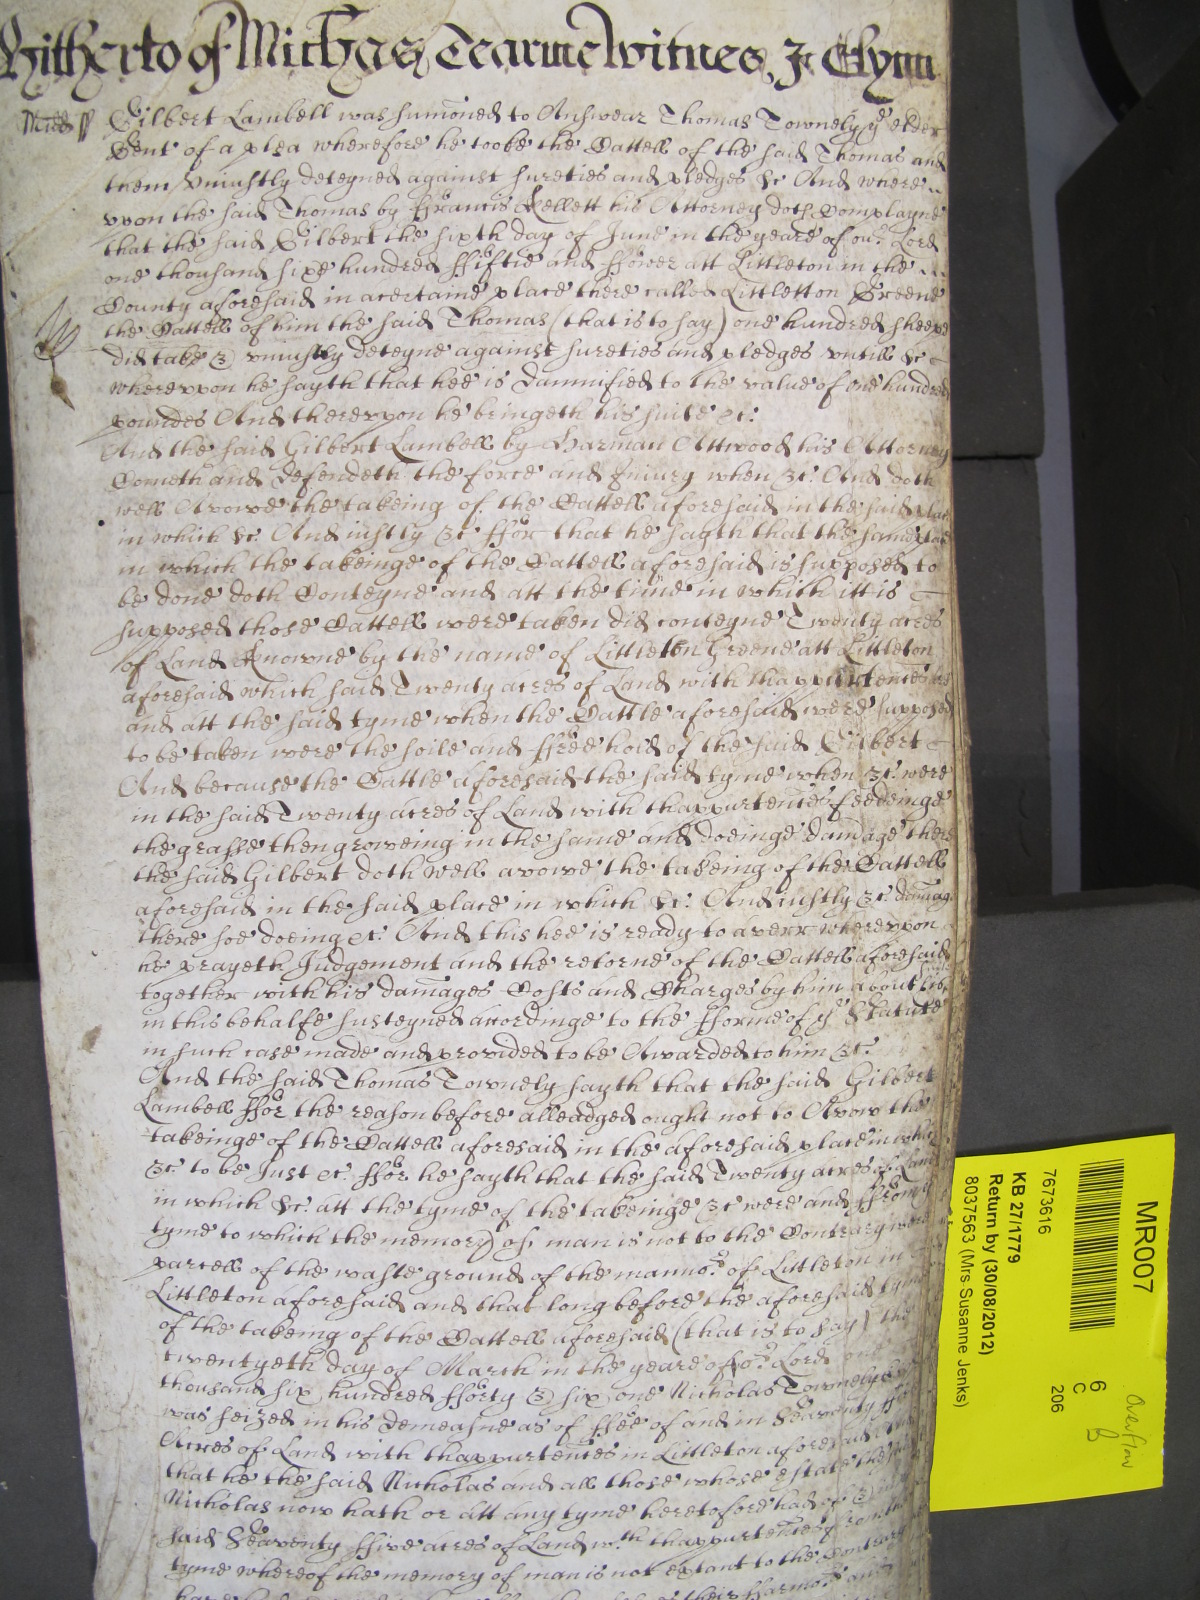 Hitherto of Michas Tearme Witnes J Glynn
Midd ss Gilbert Lambell was sumoned to Answear Thomas Townely ye elder
Gent of a plea wherefore he tooke the Cattell of the said Thomas and
them vniustly deteyned against sureties and pledges &c And where
vpon the said Thomas by ffrancis Kellett his Attorney doth Complayne
that the said Gilbert the sixth day of June in the yeare of our Lord
one thousand sixe hundred ffiftie and ffower att Littleton in the
County aforesaid in acertaine place there called Littletton Greene
the Cattell of him the said Thomas (that is to say) one hundred sheepe
did take & vniustly deteyne against sureties and pledges vntill &c
wherevpon he sayth that hee is Damnified to the value of one hundred
poundes And therevpon he bringeth his suite &c:
And the said Gilbert Lambell by Harman Attwood his Attorney
Cometh and defendeth the force and Iniury when &c: And doth
well Avowe the takeing of the Cattell aforesaid in the said place
in which &c: And iustly &c ffor that he sayth that the same place
in which the takeinge of the Cattell aforesaid is supposed to
be done doth Conteyne and att the time in which itt is
supposed those Cattell were taken did conteyne Twenty acres
of Land Knowne by the name of Littleton Greene att Littleton
aforesaid which said Twenty acres of Land with thappurtences be
and att the said tyme when the Cattle aforesaid were supposed
to be taken were the soile and ffree hold of the said Gilbert
And because the Cattle aforesaid the said tyme when &c: were
in the said Twenty acres of Land with thappurtences feedeinge
the grasse then groweing in the same and doeinge damage there
the said Gilbert doth well avowe the takeing of the Cattell
aforesaid in the said place in which &c: And iustly &c: damage
there soe doeing &c: And this hee is ready to averr wherevpon
he prayeth Judgement and the retorne of the Cattell aforesaid
together with his damages Costs and Charges by him about his
in this behalfe susteyned accordinge to the fforme of ye Statute
in such case made and provided to be Awarded to him &c:
And the said Thomas Townely sayth that the said Gilbert
Lambell ffor the reason before alleadged ought not to Avow the
takeinge of the Cattell aforesaid in the aforesaid place in which
&c: to be Just &c: ffor he sayth that the said Twenty acres of Land
in which &c: att the tyme of the takeinge &c were and ffrom ye
tyme to which the memory of man is not to the Contrary were
parcell of the waste ground of the mannor: of Littleton in
Littleton aforesaid and that long before the aforesaid tyme
of the takeing of the Cattell aforesaid (that is to say) the
twentyeth day of March in the yeare of or: Lord one
thousand six hundred fforty & six one Nicholas Townely
was seized in his demeasne as of ffee of and in Seaventy ffive
Acres of Land with thappurtences in Littleton aforesaid And
that he the said Nicholas and all those whose estate the said
Nicholas now hath or att any tyme heretofore had of & in the
said Seaventy ffive acres of Land wth thappurtences from the
tyme whereof the memory of man is not extant to the Contrary
MR007
7673616
KB 27/1779
Return by (30/08/2012)
8037563 (Mrs Susanne Jenks)
6
C
206
Overflow
B